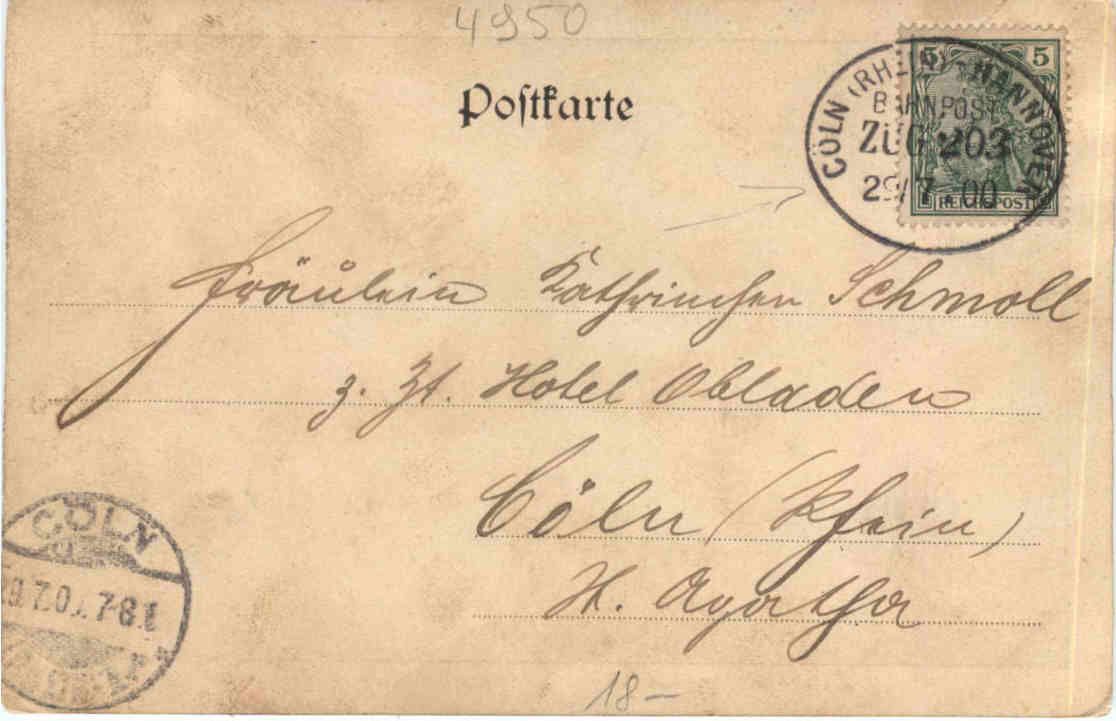 4950
Postkarte
5 5
CÖLN (RHEIN) - HANNOVER
BAHNPOST
ZUG 203
29/7 00
REICHSPOST
Fräulein Käthrinchen Schmoll
z. Zt. Hotel Obladen
Cöln (Rhein)
St. Agatha
CÖLN
7-8
18 –